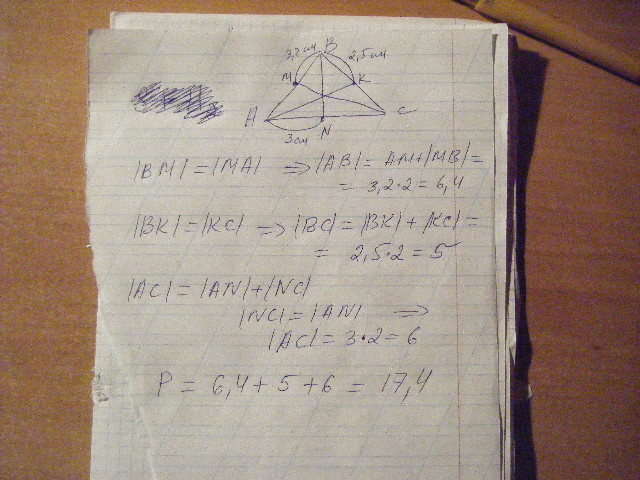 3,2см B 2,5см
M K
A N C
3см
|BM| = |MA| => |AB| = AM+|MB| =
= 3,2·2 = 6,4
|BK| = |KC| => |BC| = |BK| + |KC| =
= 2,5·2 = 5
|AC| = |AN|+|NC|
|NC| = |AN| =>
|AC| = 3·2 = 6
P = 6,4 + 5 + 6 = 17,4